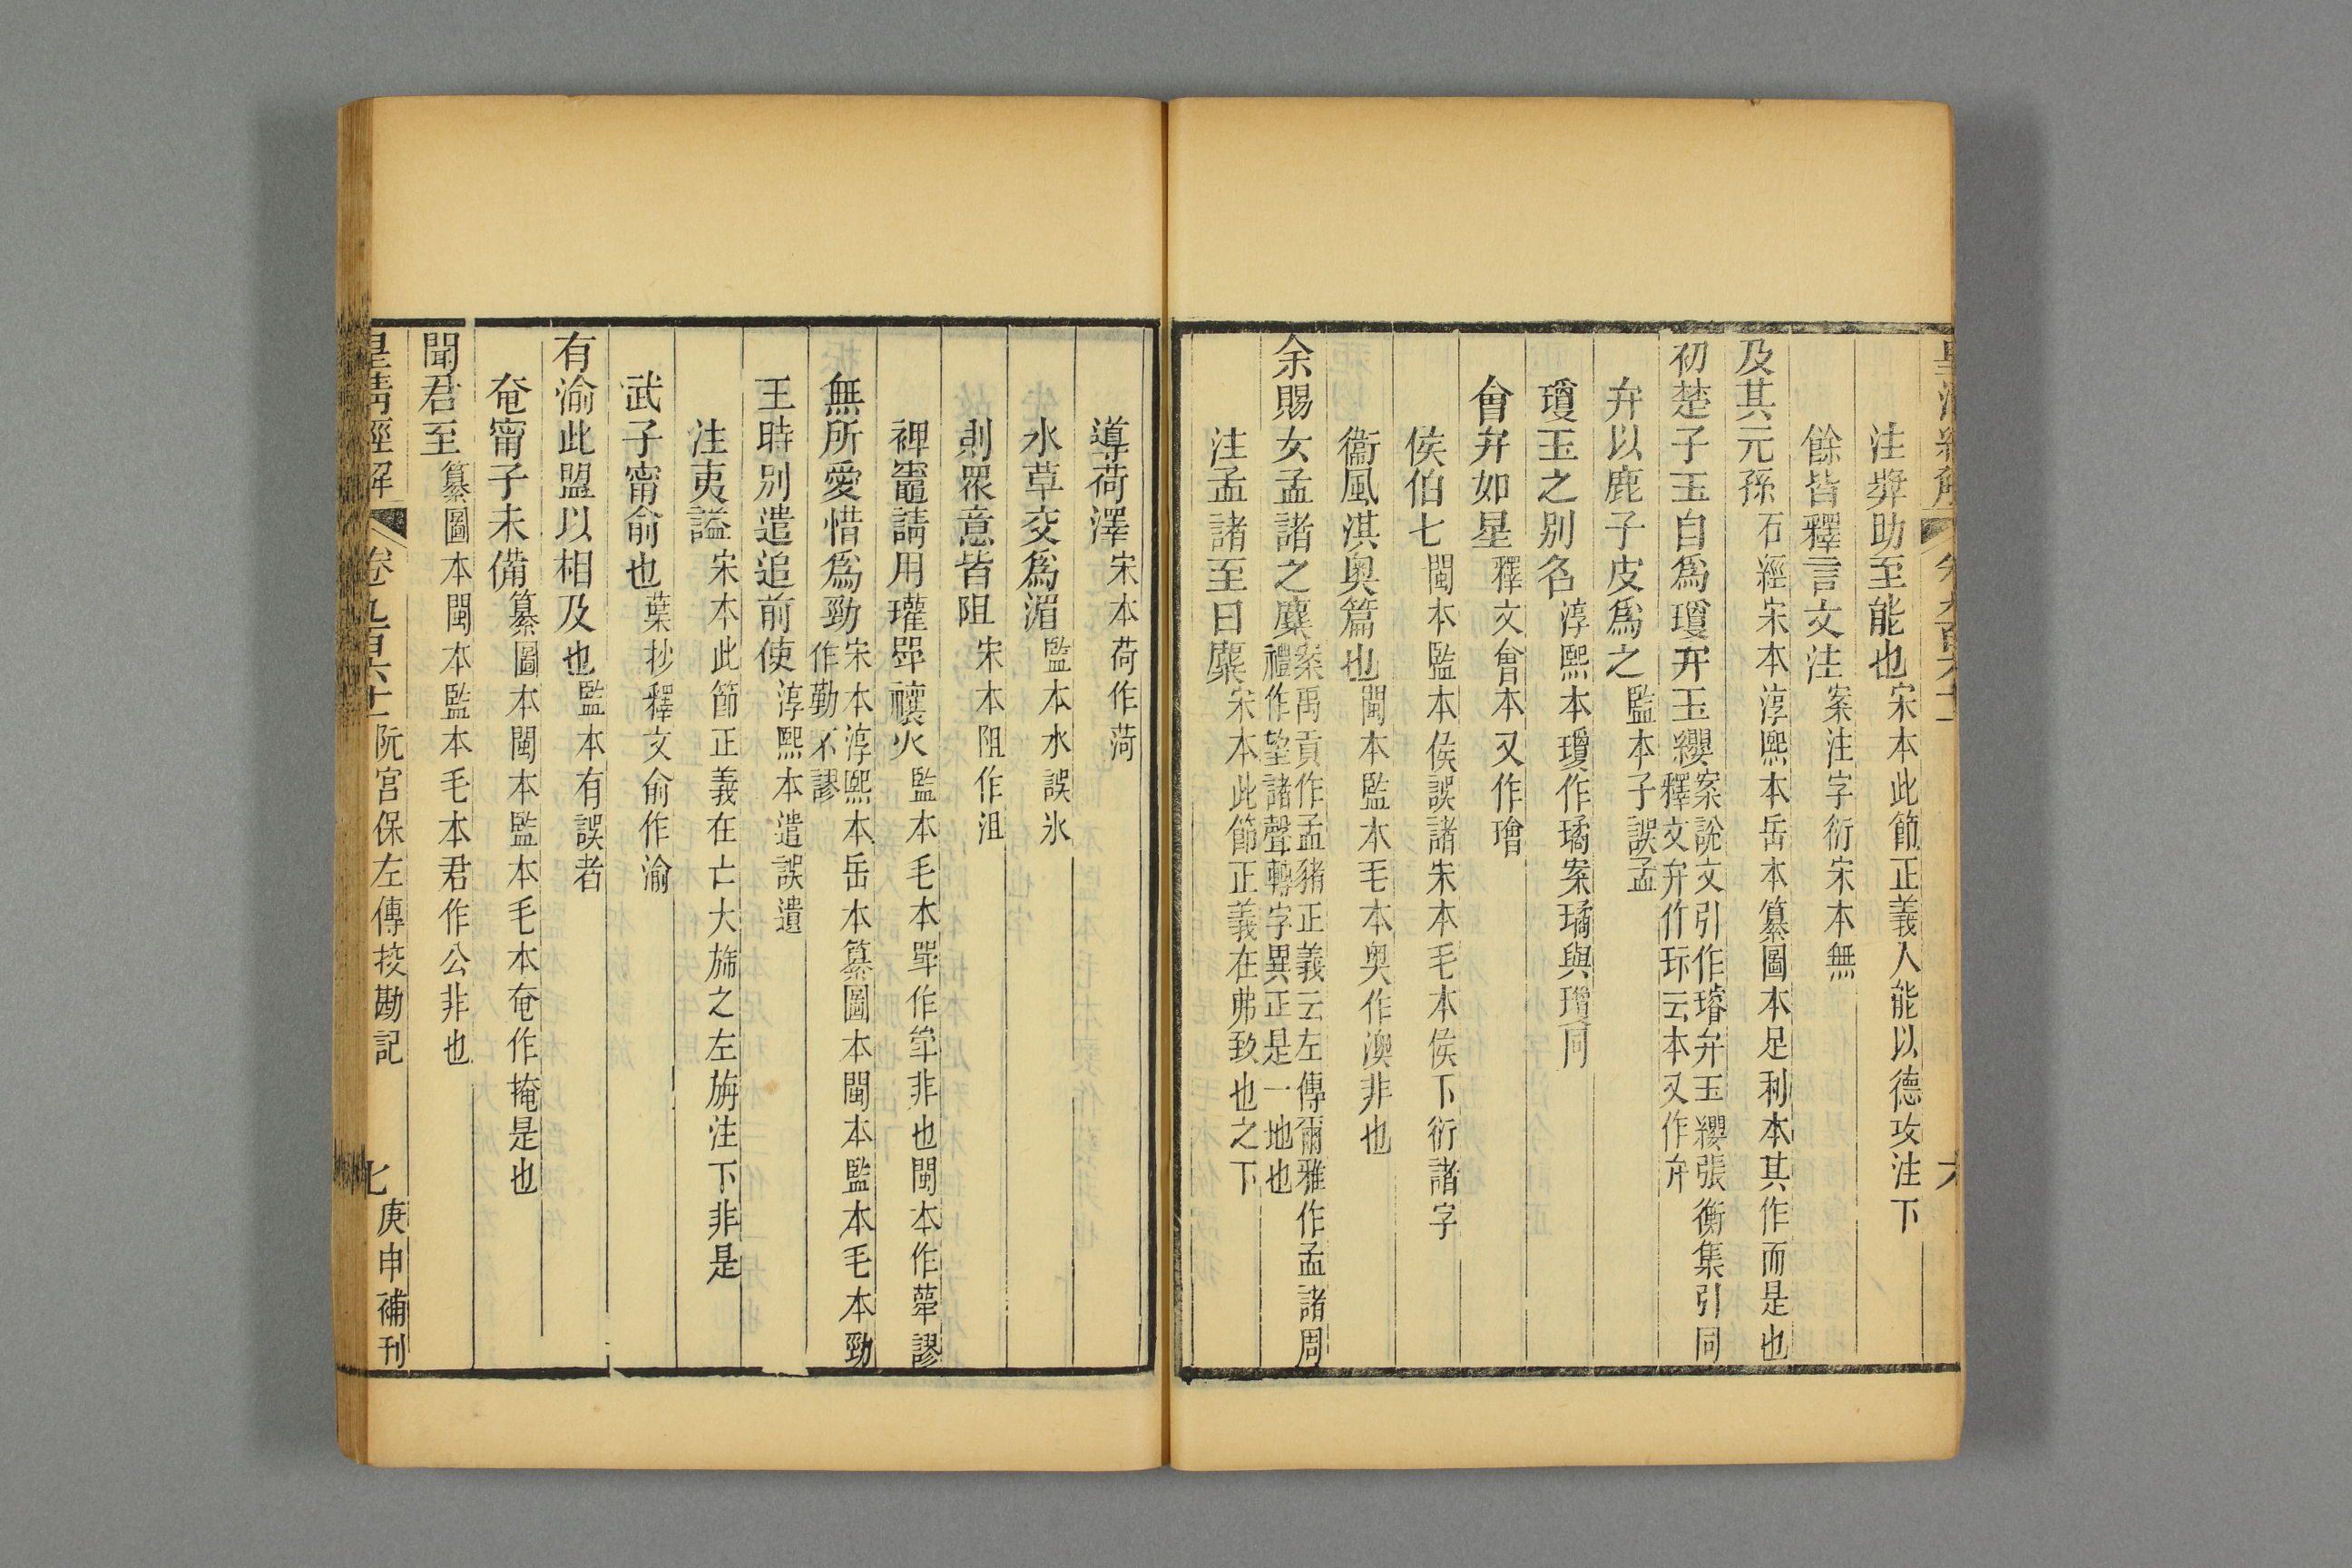 注奬助至能也宋本此節正義人能以德攻注下
餘皆釋言文注案注字衍宋本無
及其元孫石經宋本淳熙本岳本纂圖本足利本其作而是也
初楚子玉自爲瓊弁玉纓案說文引作璿弁玉纓張衡集引同
釋文弁作玣云本又作弁
弁以鹿子皮爲之監本子誤孟
瓊玉之別名淳熙本瓊作璚案璚與瓊同
會弁如星釋文會本又作璯
侯伯七閩本監本侯誤諸朱本毛本侯下衍諸字
衞風淇奥篇也閩本監本毛本奥作澳非也
余賜女孟諸之麋案禹貢作孟豬正義云左傳爾雅作孟諸周
禮作望諸聲轉字異正是一地也
注孟諸至曰麋宋本此節正義在弗致也之下
導荷澤宋本荷作菏
水草交爲湄監本水誤氷
則眾意皆阻宋本阻作沮
裨竈請用瓘斝禳火監本毛本斝作斚非也閩本作𦵸謬
無所愛惜爲勤宋本淳熙本岳本纂圖本閩本監本毛本勤
作勤不謬
王時別遣追前使淳熙本遣誤遺
注夷謚宋本此節正義在亡大旆之左旃注下非是
武子甯俞也葉抄釋文俞作渝
有渝此盟以相及也監本有誤者
奄甯子未備纂圖本閩本監本毛本奄作掩是也
聞君至纂圖本閩本監本毛本君作公非也
皇清經解 卷九百六十一 阮宮保左傳挍勘記 七 庚申補刊